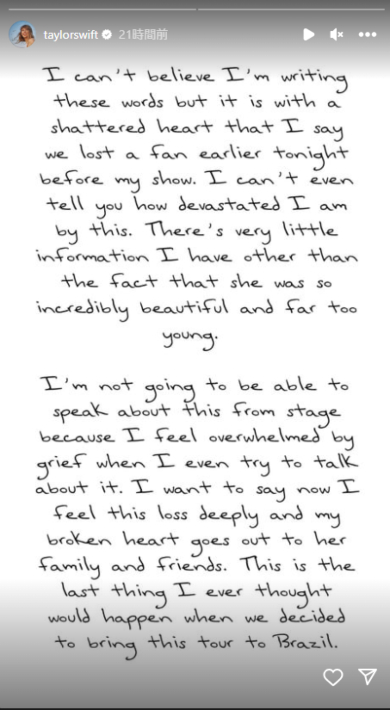 taylorswift 21時間前
I can't believe I'm writing
these words but it is with a
shattered heart that I say
we lost a fan earlier tonight
before my show. I can't even
tell you how devastated I am
by this. There's very little
information I have other than
the fact that she was so
incredibly beautiful and far too
young.
I'm not going to be able to
speak about this from stage
because I feel overwhelmed by
grief when I even try to talk
about it. I want to say now I
feel this loss deeply and my
broken heart goes out to her
family and friends. This is the
last thing I ever thought
would happen when we decided
to bring this tour to Brazil.